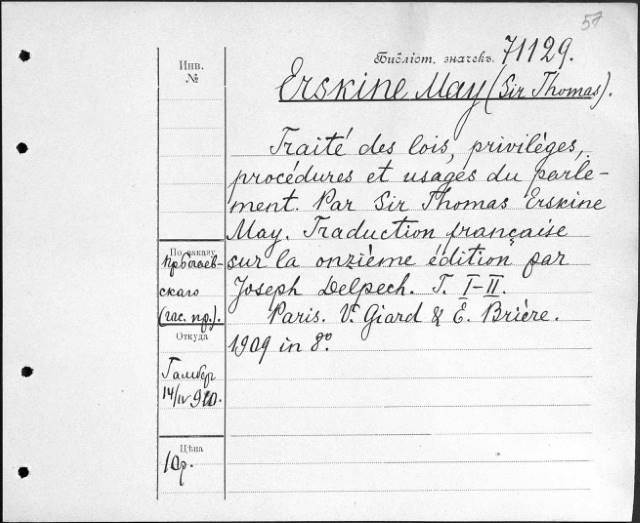 57
Библіот. значекъ. 71129.
Инв.
№
Erskine May (Sir Thomas).
Traité des lois, privilèges,
procédures et usages du parle-
ment. Par Sir Thomas Erskine
May. Traduction française
sur la onzième édition par
Joseph Delpech. T. I-II.
Paris. V. Giard & E. Brière.
1909 in 8º.
По заказу
скаго
Откуда
14/IV 910.
Цѣна
10р.